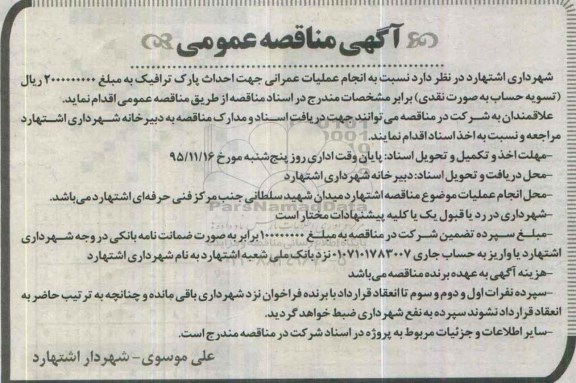 آگهی مناقصه عمومی
شهرداری اشتهارد در نظر دارد نسبت به انجام عملیات عمرانی جهت احداث پارک ترافیک به مبلغ ۲۰۰۰۰۰۰۰۰۰ ریال
(تسویه حساب به صورت نقدی) برابر مشخصات مندرج در اسناد مناقصه از طریق مناقصه عمومی اقدام نماید.
علاقمندان به شرکت در مناقصه می توانند جهت دریافت اسناد و مدارک مناقصه به دبیرخانه شهرداری اشتهارد
مراجعه و نسبت به اخذ اسناد اقدام نمایند.
-مهلت اخذ و تکمیل و تحویل اسناد: پایان وقت اداری روز پنج شنبه مورخ ۹۵/۱۱/۱۶
-محل دریافت و تحویل اسناد: دبیرخانه شهرداری اشتهارد
-محل انجام عملیات موضوع مناقصه اشتهارد میدان شهید سلطانی جنب مرکز فنی حرفه ای اشتهارد می باشد.
-شهرداری در رد یا قبول یک یا کلیه پیشنهادات مختار است
ParsNamadData
-مبلغ سپرده تضمین شرکت در مناقصه به مبلغ ۱۰۰۰۰۰۰۰۰ برابر به صورت ضمانت نامه بانکی در وجه شهرداری
اشتهارد یا واریز به حساب جاری ۰۱۰۷۱۰۱۷۸۳۰۰۷ نزد بانک ملی شعبه اشتهارد به نام شهرداری اشتهارد
-هزینه آگهی به عهده برنده مناقصه می باشد
-سپرده نفرات اول و دوم و سوم تا انعقاد قرارداد با برنده فراخوان نزد شهرداری باقی مانده و چنانچه به ترتیب حاضر به
انعقاد قرارداد نشوند سپرده به نفع شهرداری ضبط خواهد گردید.
-سایر اطلاعات و جزئیات مربوط به پروژه در اسناد شرکت در مناقصه مندرج است.
علی موسوی- شهردار اشتهارد